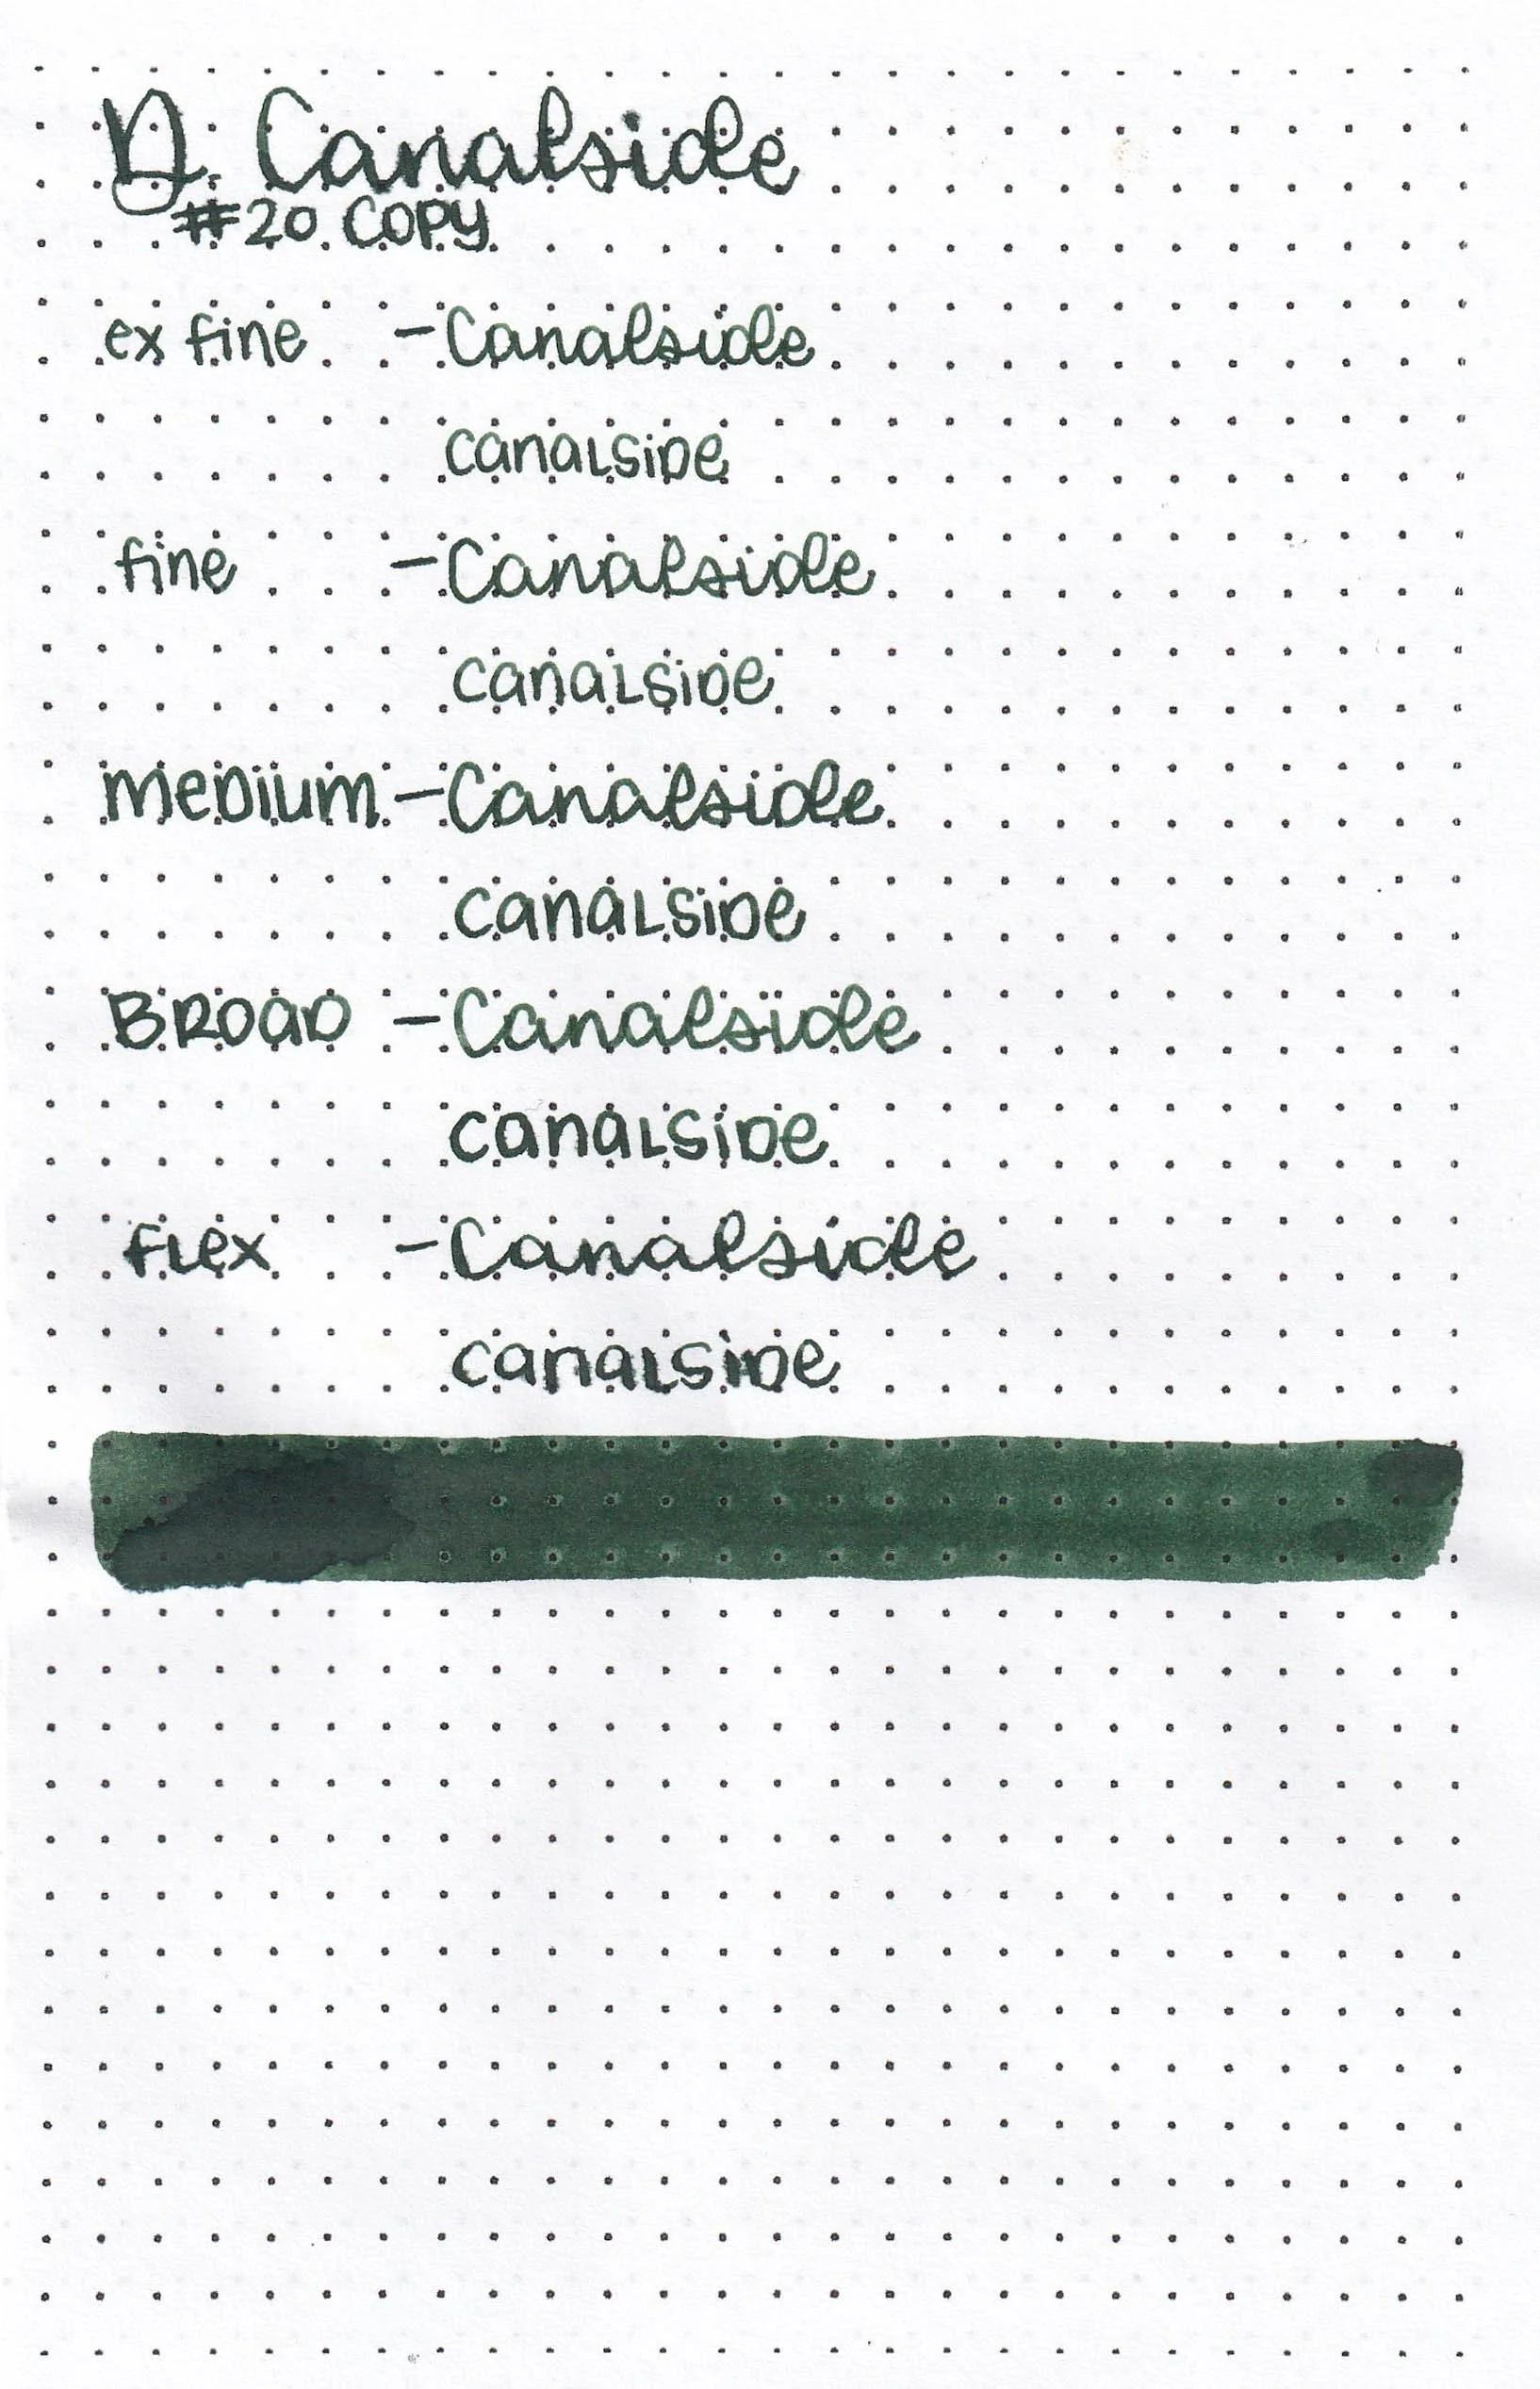 D. Canalside
#20 COPY
ex fine - Canalside
canalside
fine - Canalside
canalside
medium - Canalside
canalside
BROAD - Canalside
canalside
flex - Canalside
canalside